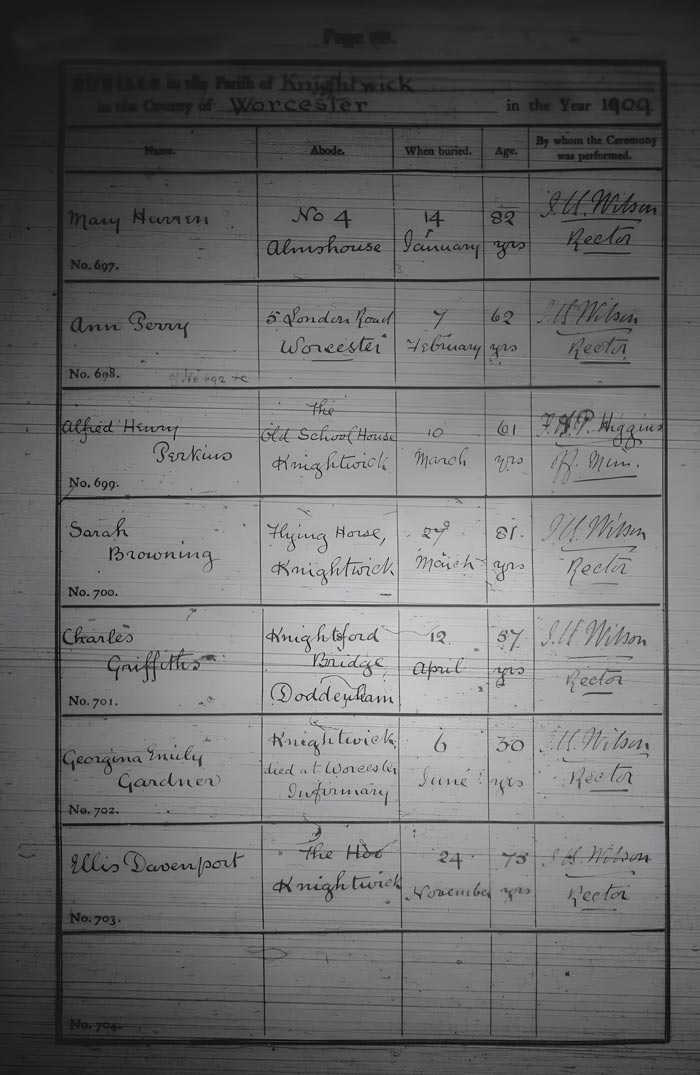 Page 88.
BURIALS in the Parish of Knightwick
in the County of Worcester in the Year 1909
Name. Abode. When buried. Age. By whom the Ceremony was performed.
Mary No 4 14 82 Wilson
Almshouse January yrs Rector
No. 697.
Ann Perry 5 London Road 7 62 Wilson
Worcester February yrs Rector
No. 698.
The
Alfred Henry Old School House 10 61 F.H.P. Higgins
Perkins Knightwick March yrs Off. Min.
No. 699.
Sarah Flying Horse, 27 81 Wilson
Browning Knightwick March yrs Rector
No. 700.
Charles Knightsford 12 57 Wilson
Griffiths Bridge April yrs Rector
No. 701. Doddenham
Georgina Emily Knightwick, 6 30 Wilson
Gardner died at Worcester June yrs Rector
Infirmary
No. 702.
Ellis Davenport The Hoo 24 75 Wilson
Knightwick November yrs Rector
No. 703.
No. 704.